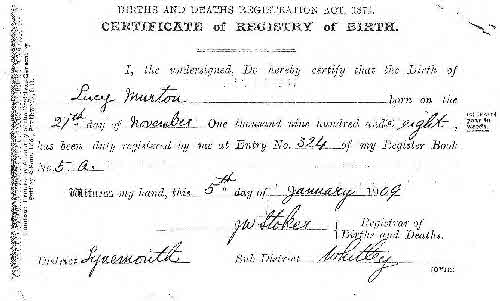 BIRTHS AND DEATHS REGISTRATION ACT, 1874.
CERTIFICATE of REGISTRY of BIRTH.
I, the undersigned, Do hereby certify that the Birth of
Lucy Murton born on the
21st day of November One thousand nine hundred and eight,
has been duly registered by me at Entry No. 324 of my Register Book
No. 5.a.
Witness my hand, this 5th day of January 1909
JW Stoker Registrar of
Births and Deaths.
District Tynemouth Sub-District Whitley
year in
words